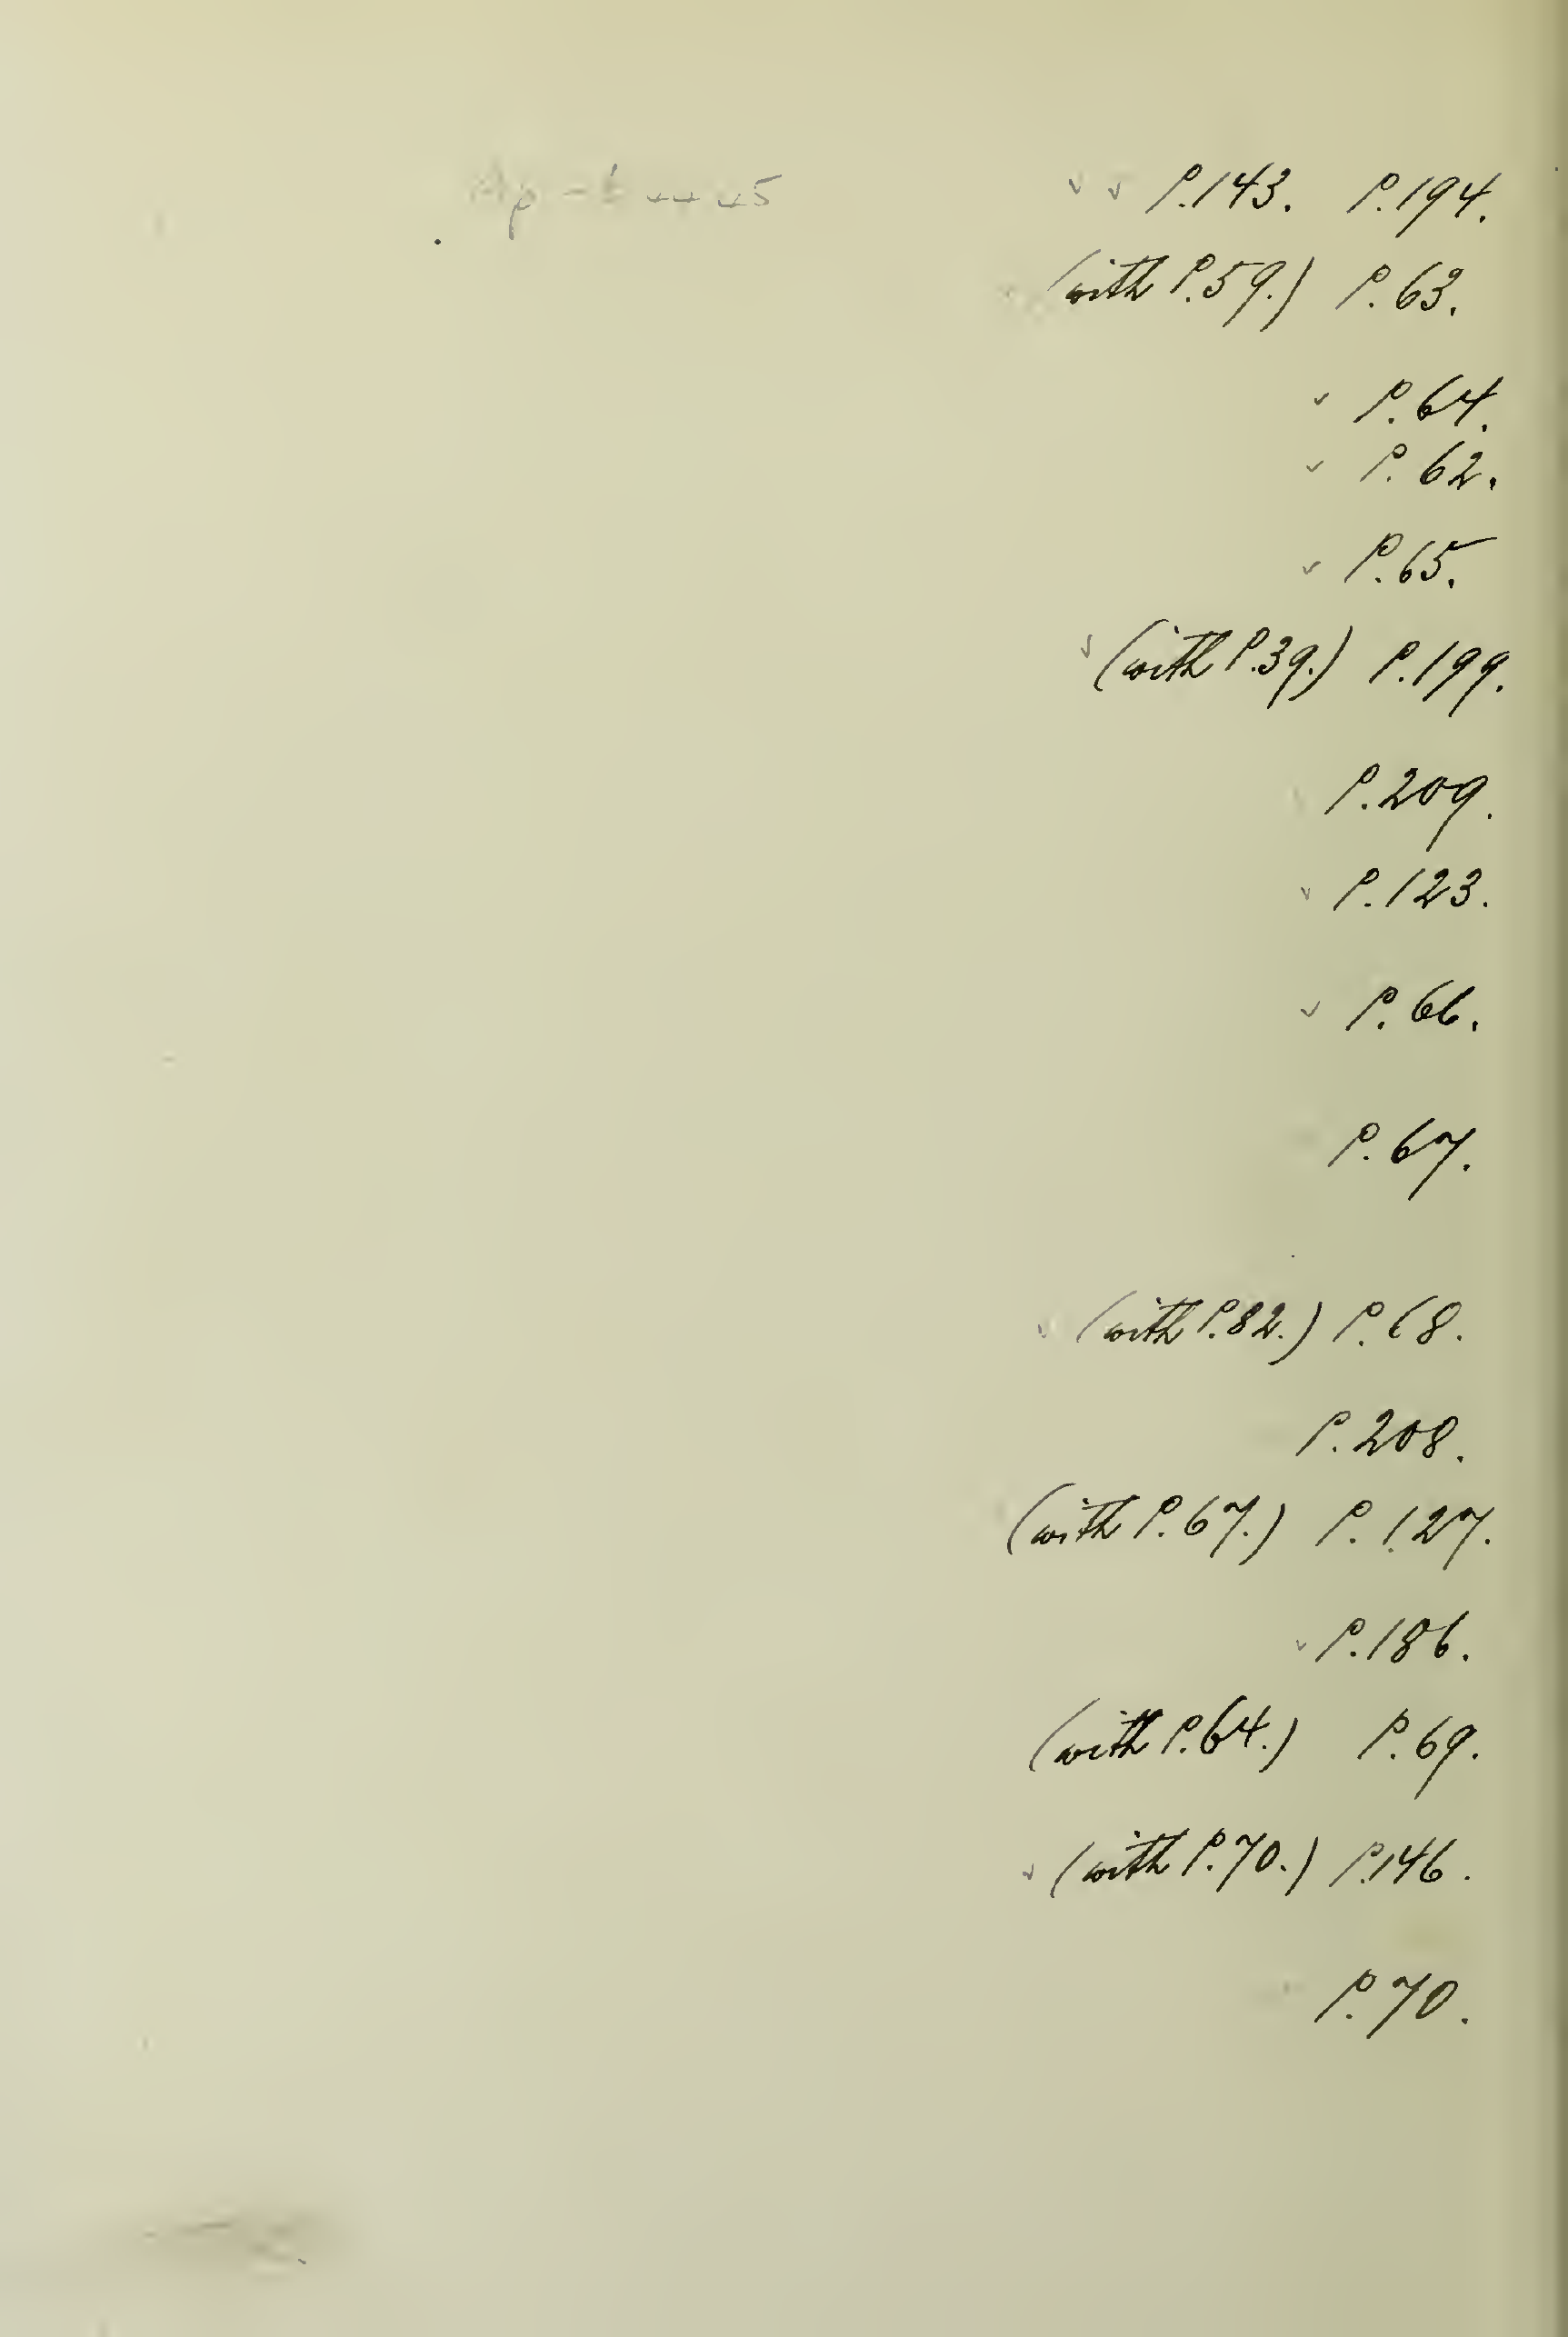 ✓ ✓ P.143. P.194.
(with P.59.) P.63.
✓ P.64.
✓ P.62.
✓ P.65.
✓ (with P.39.) P.199.
P.209.
✓ P.123.
✓ P.66.
P.67.
✓ (with P.82.) P.68.
P.208.
(with P.67.) P.127.
✓ P.186.
(with P.64.) P.69.
✓ (with P.70.) P.146.
P.70.